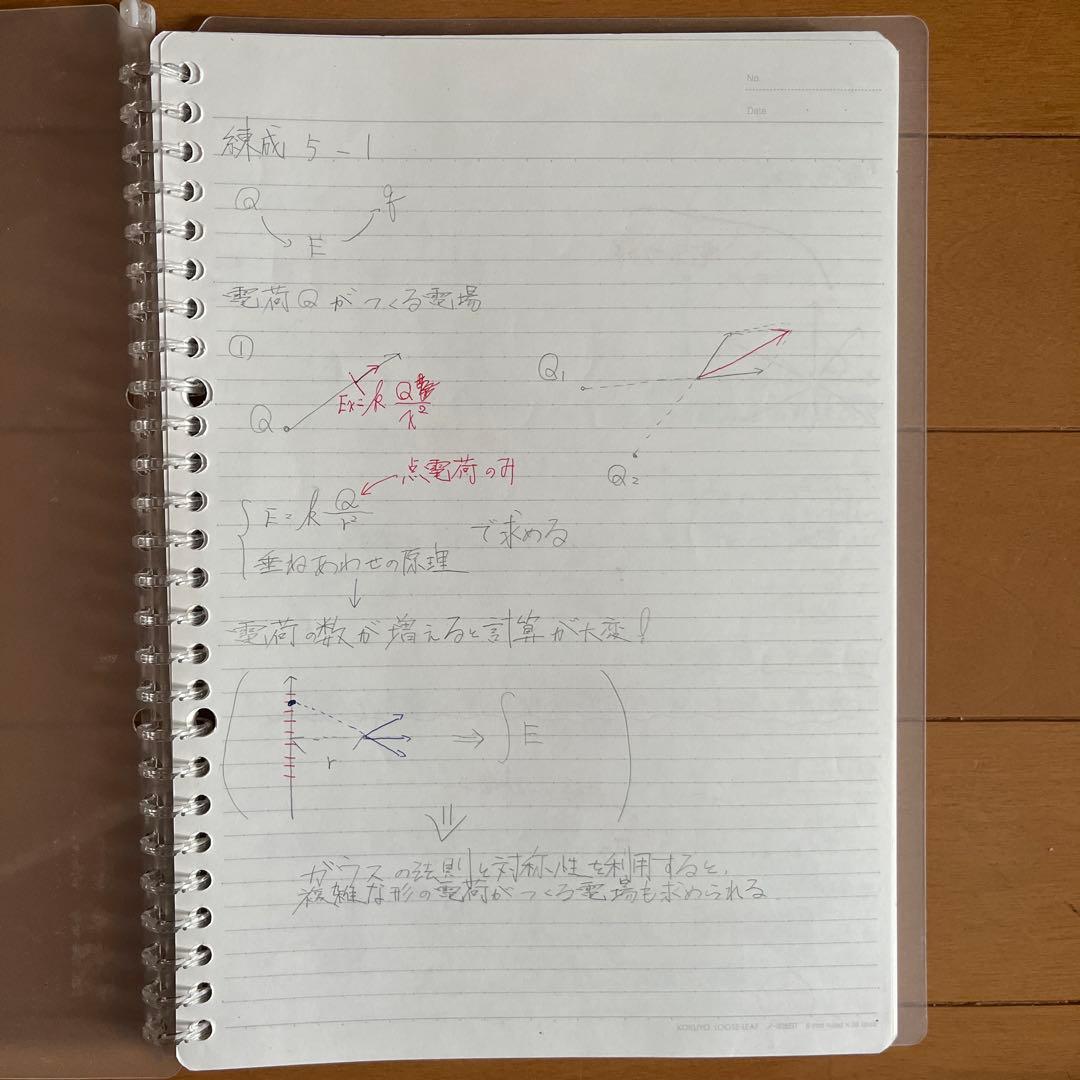 No.
Date
練成 5-1
Q q
E
電荷Qがつくる電場
①
Q
Ex=k Q/x²
Q₁
Q₂
点電荷のみ
E=k Q/r²
重ねあわせの原理
で求める
電荷の数が増えると計算が大変!
r
⇒ ∫E
ガウスの法則と対称性を利用すると,
複雑な形の電荷がつくる電場も求められる
KOKUYO LOOSE-LEAF